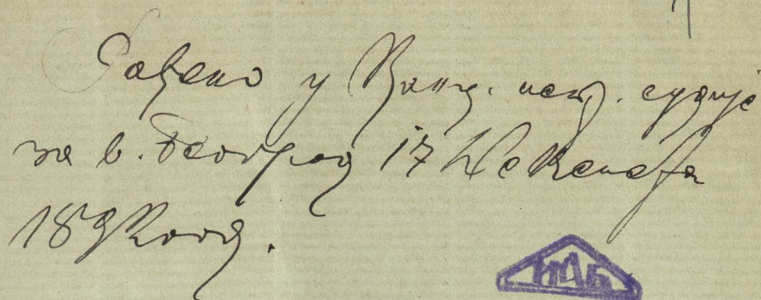 Рађено у Канц. исп. судије
за в. Београд 17 Декембра
189 год.
ТМБ